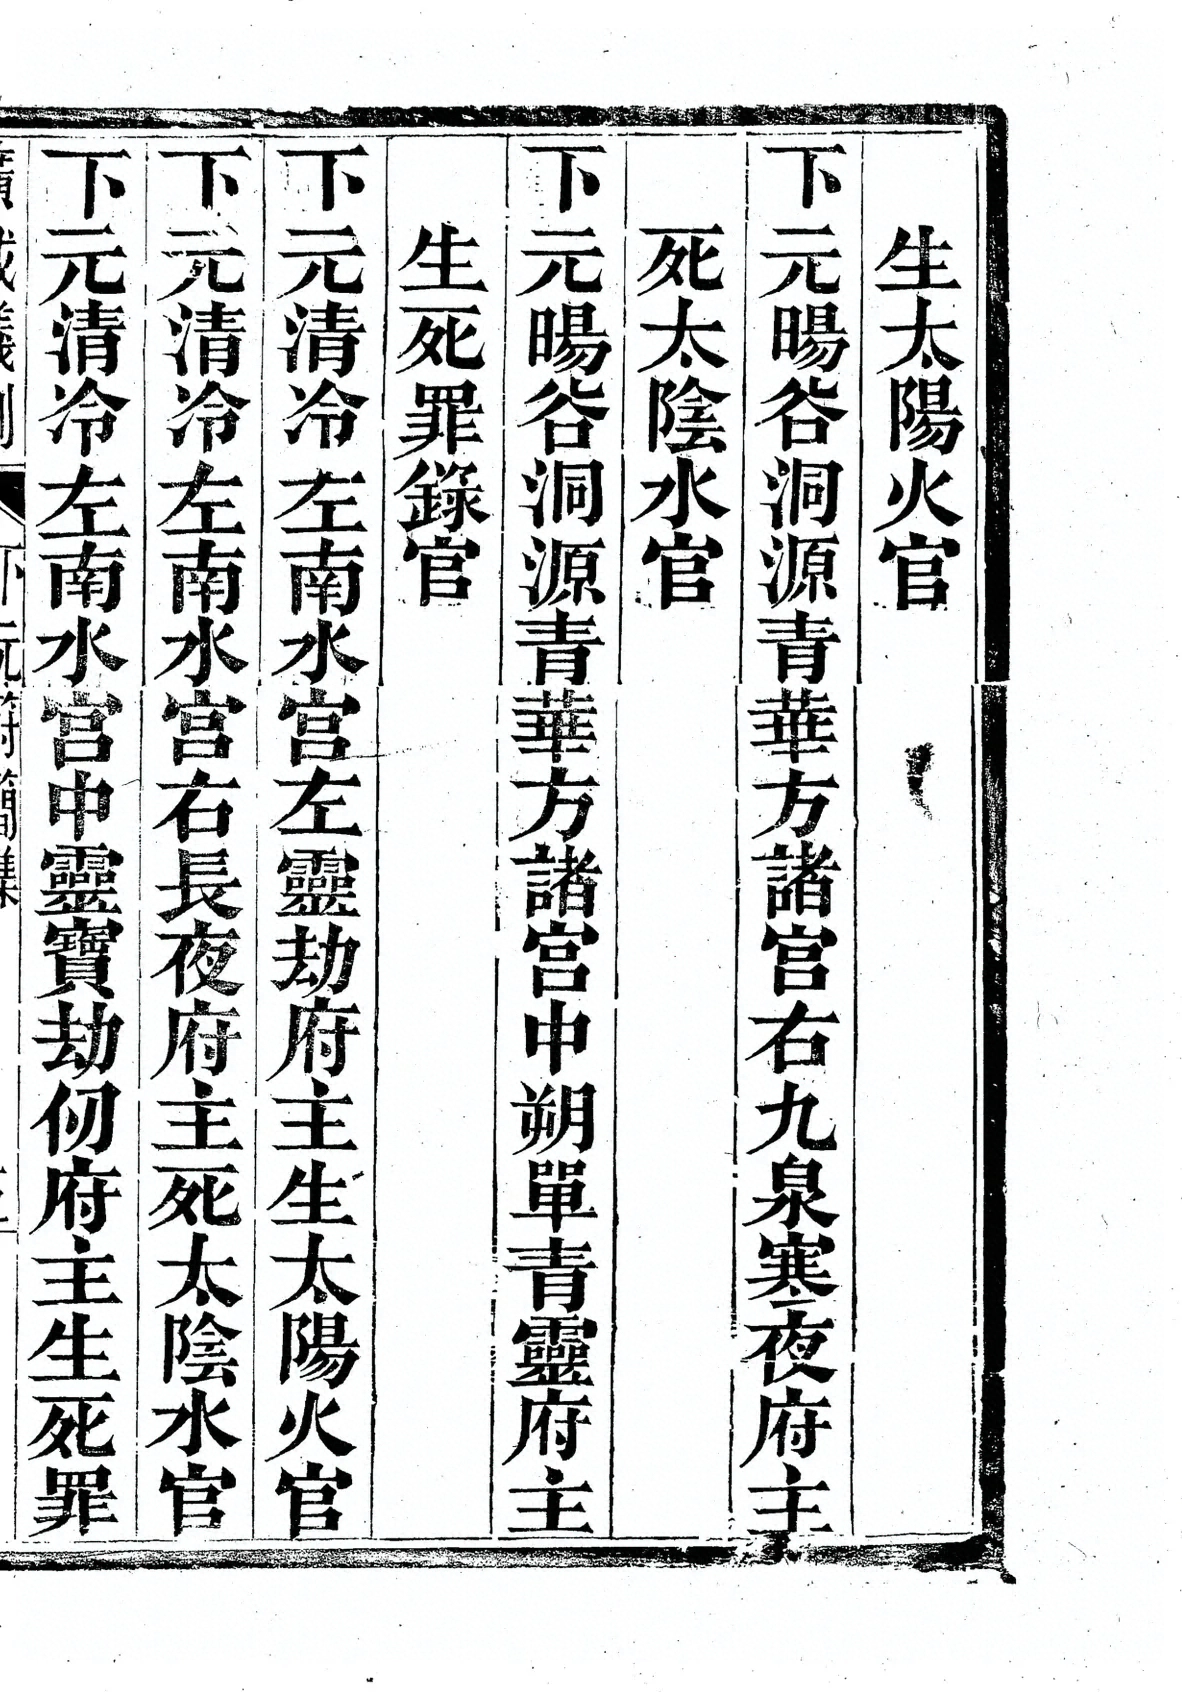 生太陽火官
下元暘谷洞源青華方諸宮右九泉寒夜府主
死太陰水官
下元暘谷洞源青華方諸宮中朔單青靈府主
生死罪錄官
下元清冷左南水宮左靈劫府主生太陽火官
下元清冷左南水宮右長夜府主死太陰水官
下元清冷左南水宮中靈寶劫仞府主生死罪